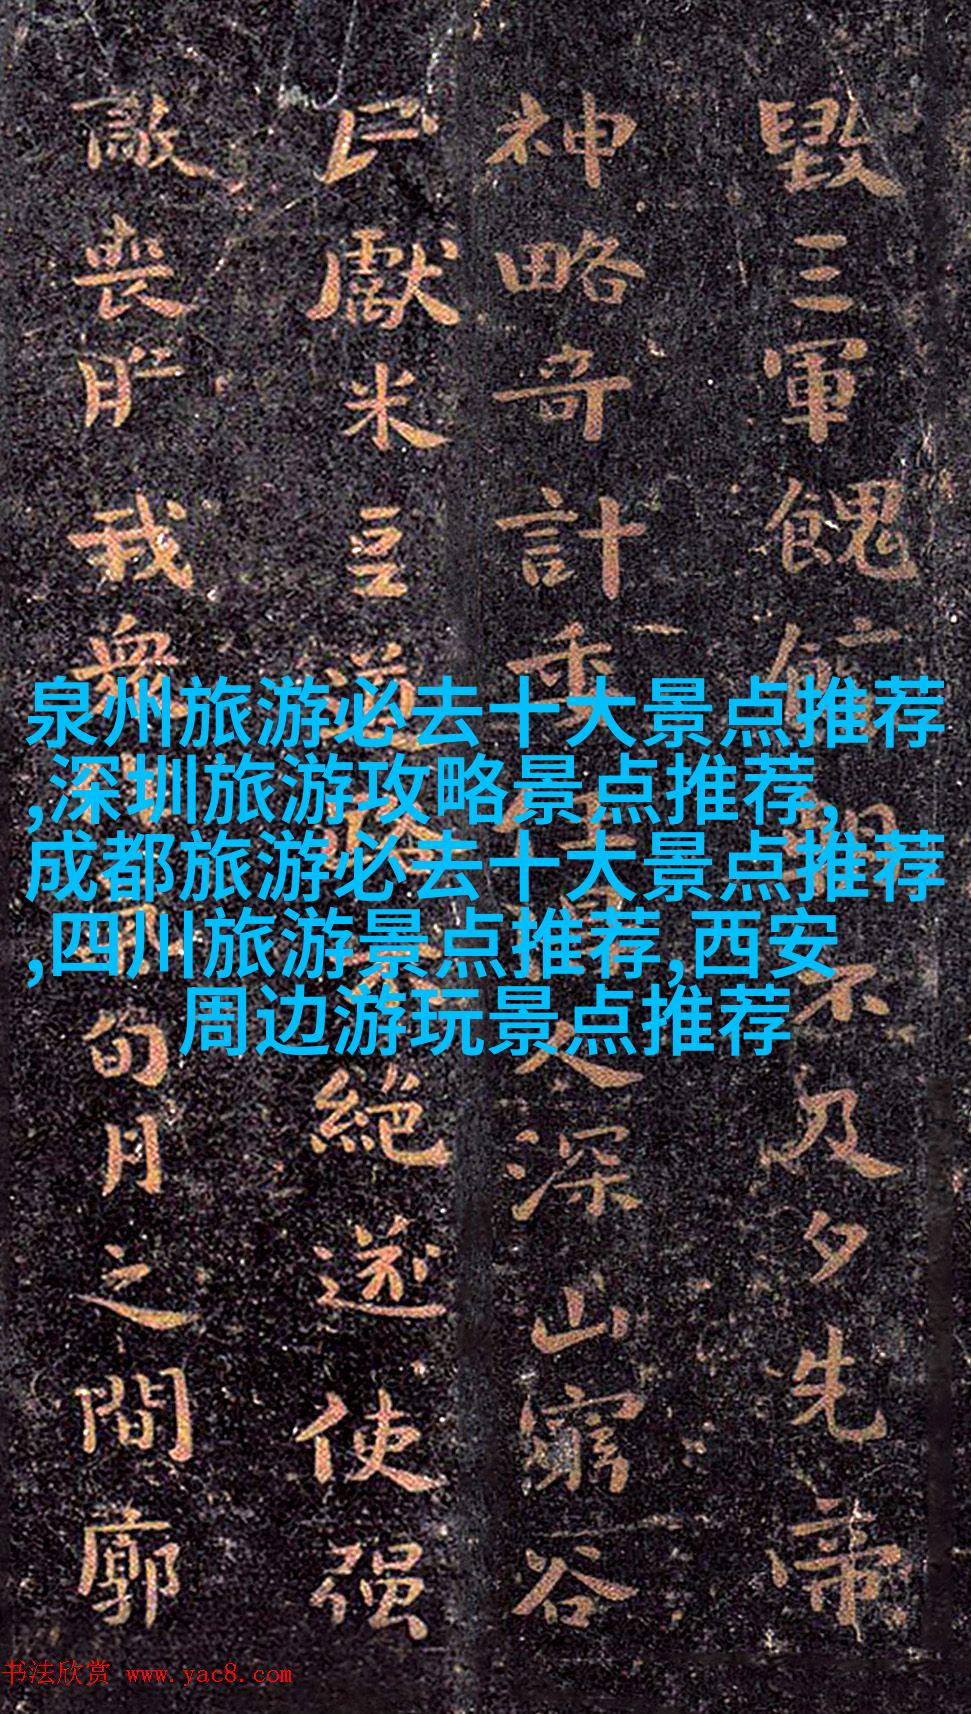 毀三軍餽朝不及夕先帝
神略奇計委人深山窮谷
民獻米豆道絕遂使强
敵喪膽我衆旬月之間廓
泉州旅游必去十大景点推荐
,深圳旅游攻略景点推荐,
成都旅游必去十大景点推荐
,四川旅游景点推荐,西安
周边游玩景点推荐
书法欣赏 www.yac8.com